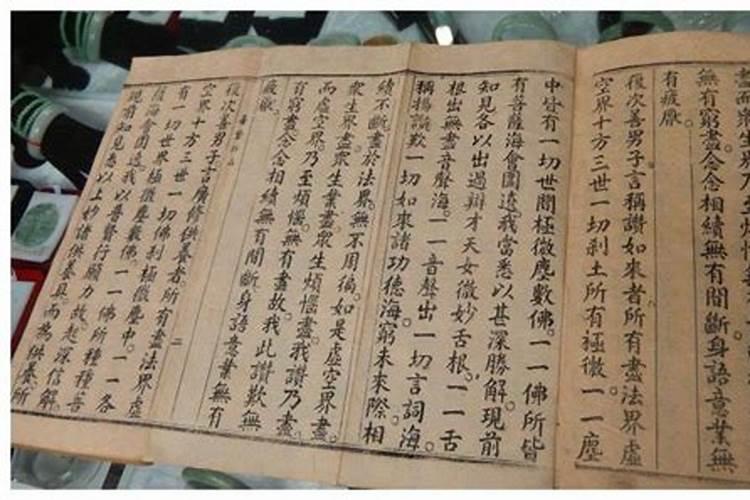 無有窮盡念念相續無有間斷身語意業無
有疲厭
復次善男子言稱讚如來者所有盡法界虛
空界十方三世一切剎土所有極微一一塵
中皆有一切世間極微塵數佛。一一佛所皆
有菩薩海會圍遶。我當悉以甚深勝解現前
知見各以出過辯才天女微妙舌根。一一舌
根出無盡音聲海。一一音聲出一切言詞海。
稱揚讚歎一切如來諸功德海。窮未來際。相
續不斷。盡於法界。無不周徧。如是虛空界盡。
眾生界盡。眾生業盡。眾生煩惱盡。我讚乃盡。
而虛空界。乃至煩惱。無有盡故。我此讚歎無
有窮盡。念念相續無有間斷。身語意業無有
疲厭。
二
復次善男子言廣修供養者。所有盡法界虛
空界十方三世一切佛剎極微塵中。一一各
有一切世界極微塵數佛。一一佛所種種菩
薩海會圍遶。我以普賢行願力故。起深信解
現前知見。悉以上妙諸供養具。而為供養。所